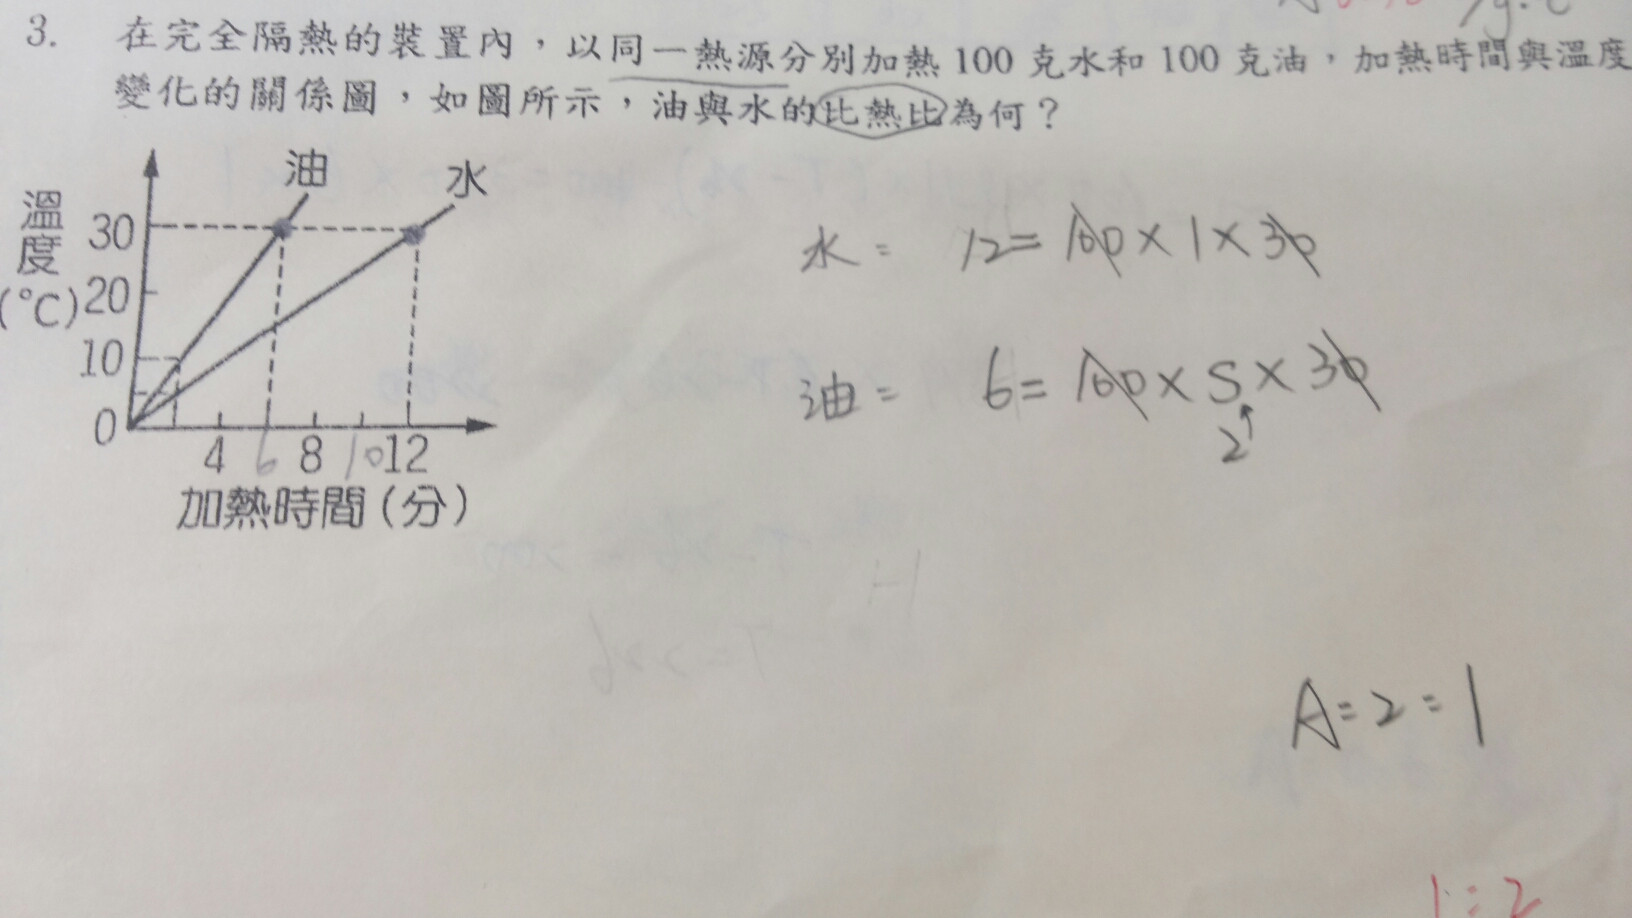 3. 在完全隔熱的裝置內，以同一熱源分別加熱 100 克水和 100 克油，加熱時間與溫度
變化的關係圖，如圖所示，油與水的比熱比為何？
油
水
溫度
(°C)
30
20
10
0
4 6 8 10 12
加熱時間(分)
水 = 12 = 100 × 1 × 30
油 = 6 = 100 × S × 30
2
A = 2 = 1
1 : 2